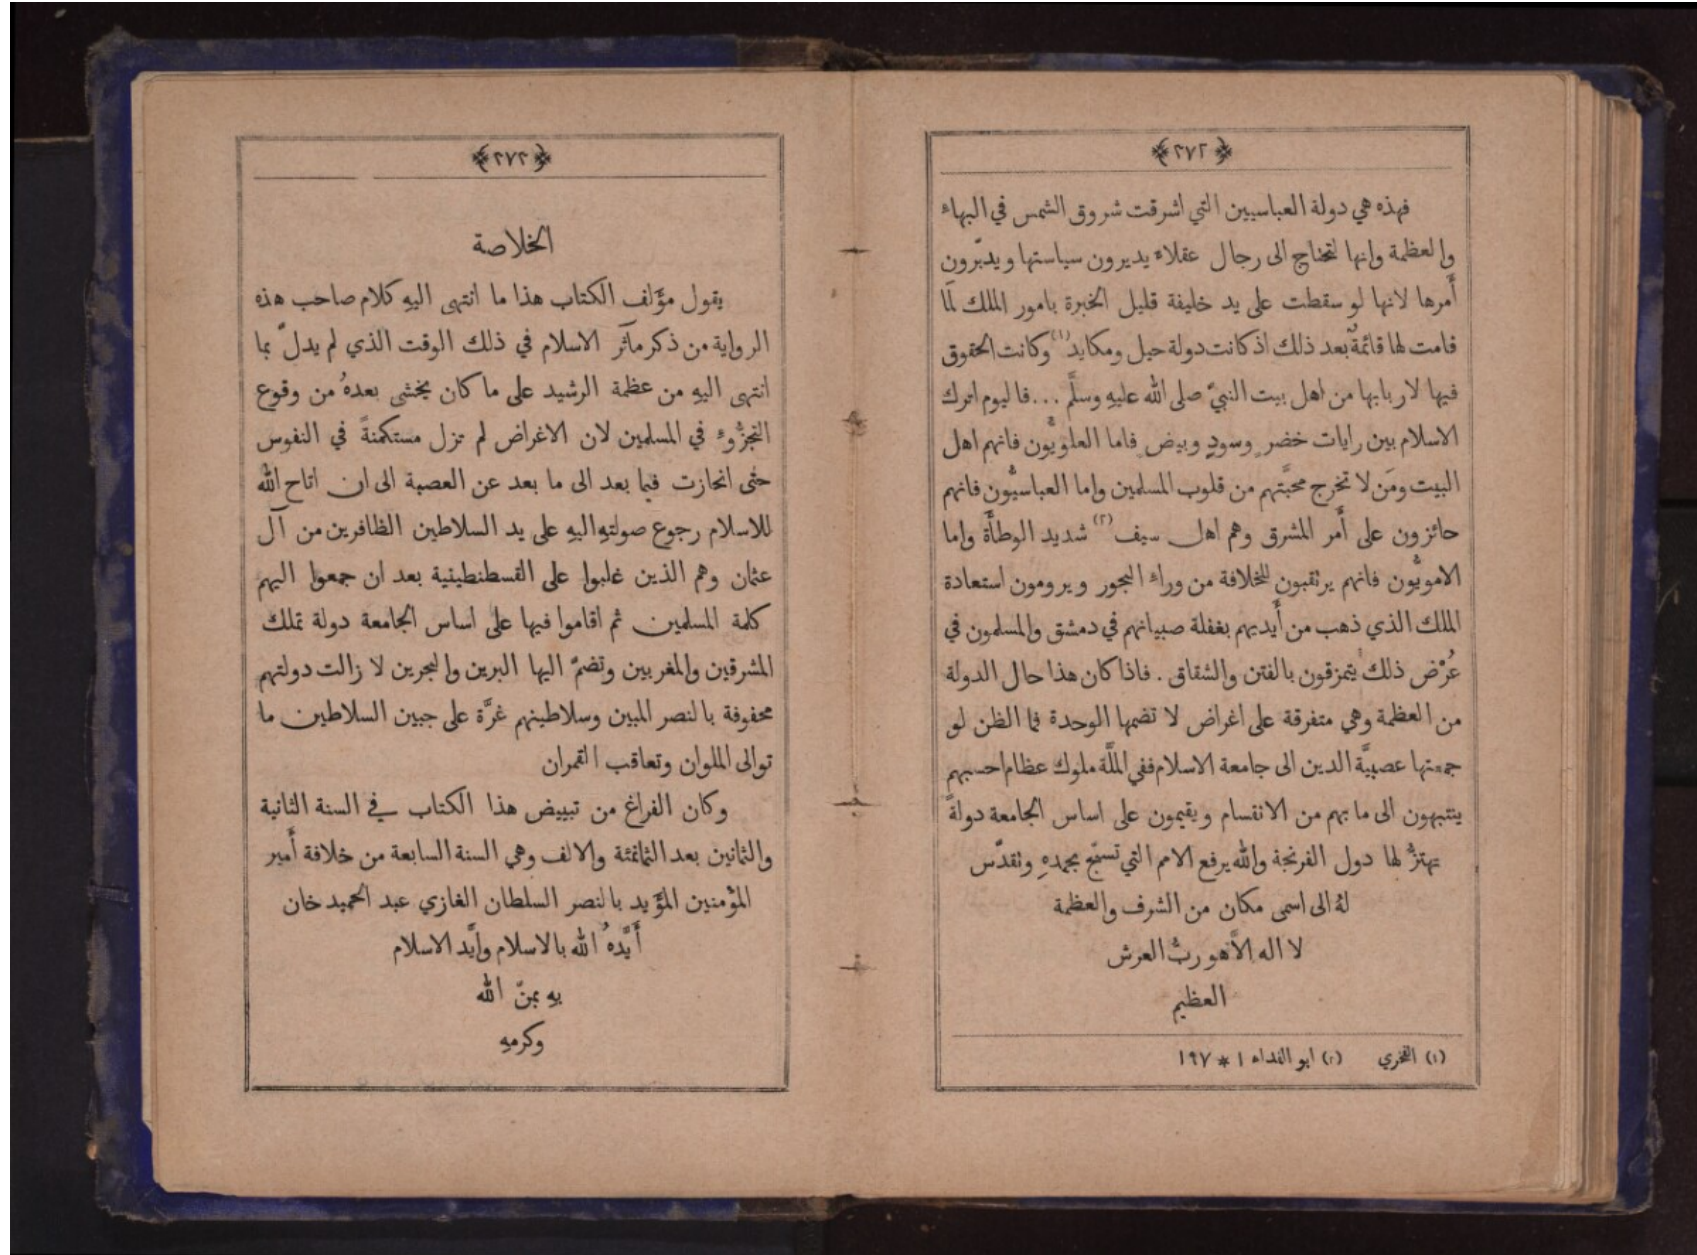 ﴿٢٧٢﴾
فهذه هي دولة العباسيين التي اشرقت شروق الشمس في البهاء
والعظمة وانها لتحتاج الى رجال عقلاء يديرون سياستها ويدبّرون
أمرها لانها لو سقطت على يد خليفة قليل الخبرة بامور الملك لَمَا
قامت لها قائمةٌ بعد ذلك اذ كانت دولة حيل ومكايد(١) وكانت الحقوق
فيها لاربابها من اهل بيت النبيّ صلى الله عليهِ وسلَّم ... فاليوم اترك
الاسلام بين رايات خضرٍ وسودٍ وبيضٍ فاما العلويُّون فانهم اهل
البيت ومَن لا تخرج محبَّتهم من قلوب المسلمين واما العباسيُّون فانهم
حائزون على أمر المشرق وهم اهل سيف(٢) شديد الوطأة واما
الامويُّون فانهم يرتقبون للخلافة من وراء البحور ويرومون استعادة
الملك الذي ذهب من أيديهم بغفلة صبيانهم في دمشق والمسلمون في
عُرْض ذلك يتمزقون بالفتن والشقاق . فاذا كان هذا حال الدولة
من العظمة وهي متفرقة على اغراض لا تضمها الوحدة فما الظن لو
جمعتها عصبيَّة الدين الى جامعة الاسلام ففي الملَّة ملوك عظام احسبهم
ينتبهون الى ما بهم من الانقسام ويقيمون على اساس الجامعة دولةً
تهتزُّ لها دول الفرنجة والله يرفع الامم التي تسبّح بحمدهِ وتقدّس
لهُ الى اسمى مكان من الشرف والعظمة
لا اله الاَّ هو ربُّ العرش
العظيم
(١) الفخري (٢) ابو الفداء ١ * ١٩٧
﴿٢٧٣﴾
الخلاصة
يقول مؤلف الكتاب هذا ما انتهى اليهِ كلام صاحب هذه
الرواية من ذكر مآثر الاسلام في ذلك الوقت الذي لم يدلّ بما
انتهى اليهِ من عظمة الرشيد على ما كان يخشى بعدهُ من وقوع
التجزُّوء في المسلمين لان الاغراض لم تزل مستكمنةً في النفوس
حتى انحازت فيما بعد الى ما بعد عن العصبة الى ان اتاح الله
للاسلام رجوع صولتهِ اليهِ على يد السلاطين الظافرين من آل
عثمان وهم الذين غلبوا على القسطنطينية بعد ان جمعوا اليهم
كلمة المسلمين ثم اقاموا فيها على اساس الجامعة دولة تملك
المشرقين والمغربين وتضمّ اليها البرين والبحرين لا زالت دولتهم
محفوفة بالنصر المبين وسلاطينهم غرَّة على جبين السلاطين ما
توالى الملوان وتعاقب القمران
وكان الفراغ من تبييض هذا الكتاب في السنة الثانية
والثمانين بعد الثمانمئة والالف وهي السنة السابعة من خلافة أمير
المؤمنين المؤيد بالنصر السلطان الغازي عبد الحميد خان
أيَّدهُ الله بالاسلام وايَّد الاسلام
بهِ بمنّ الله
وكرمهِ